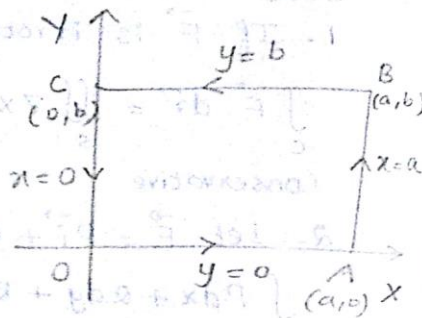 Y
y = b
C
B
(0,b)
(a,b)
x=0
x=a
O
y=0
A
X
(a,0)